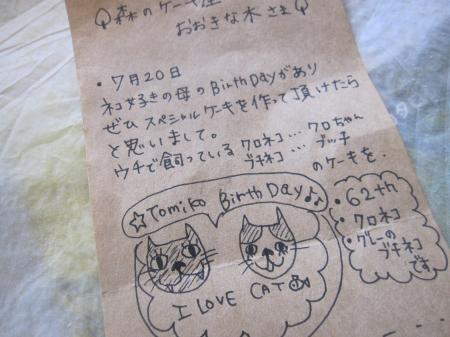 森のケーキ屋
おおきな木 さま
・7月20日
ネコ好きの母のBirthDayがあり
ぜひ スペシャルケーキを作って頂けたら
と思いまして。
ウチで飼っている クロネコ… クロちゃん
ブチネコ… ブッチ
のケーキを.
☆Tomiko BirthDay♪♪
I LOVE CAT
・62th
・クロネコ
・グレーの
ブチネコ
です